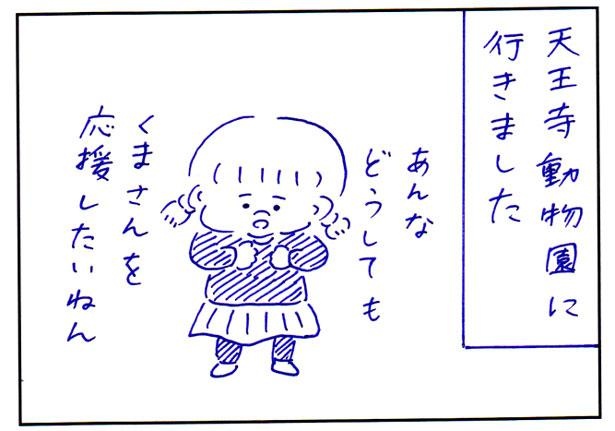 天王寺動物園に
行きました
あんな
どうしても
くまさんを
応援したいねん